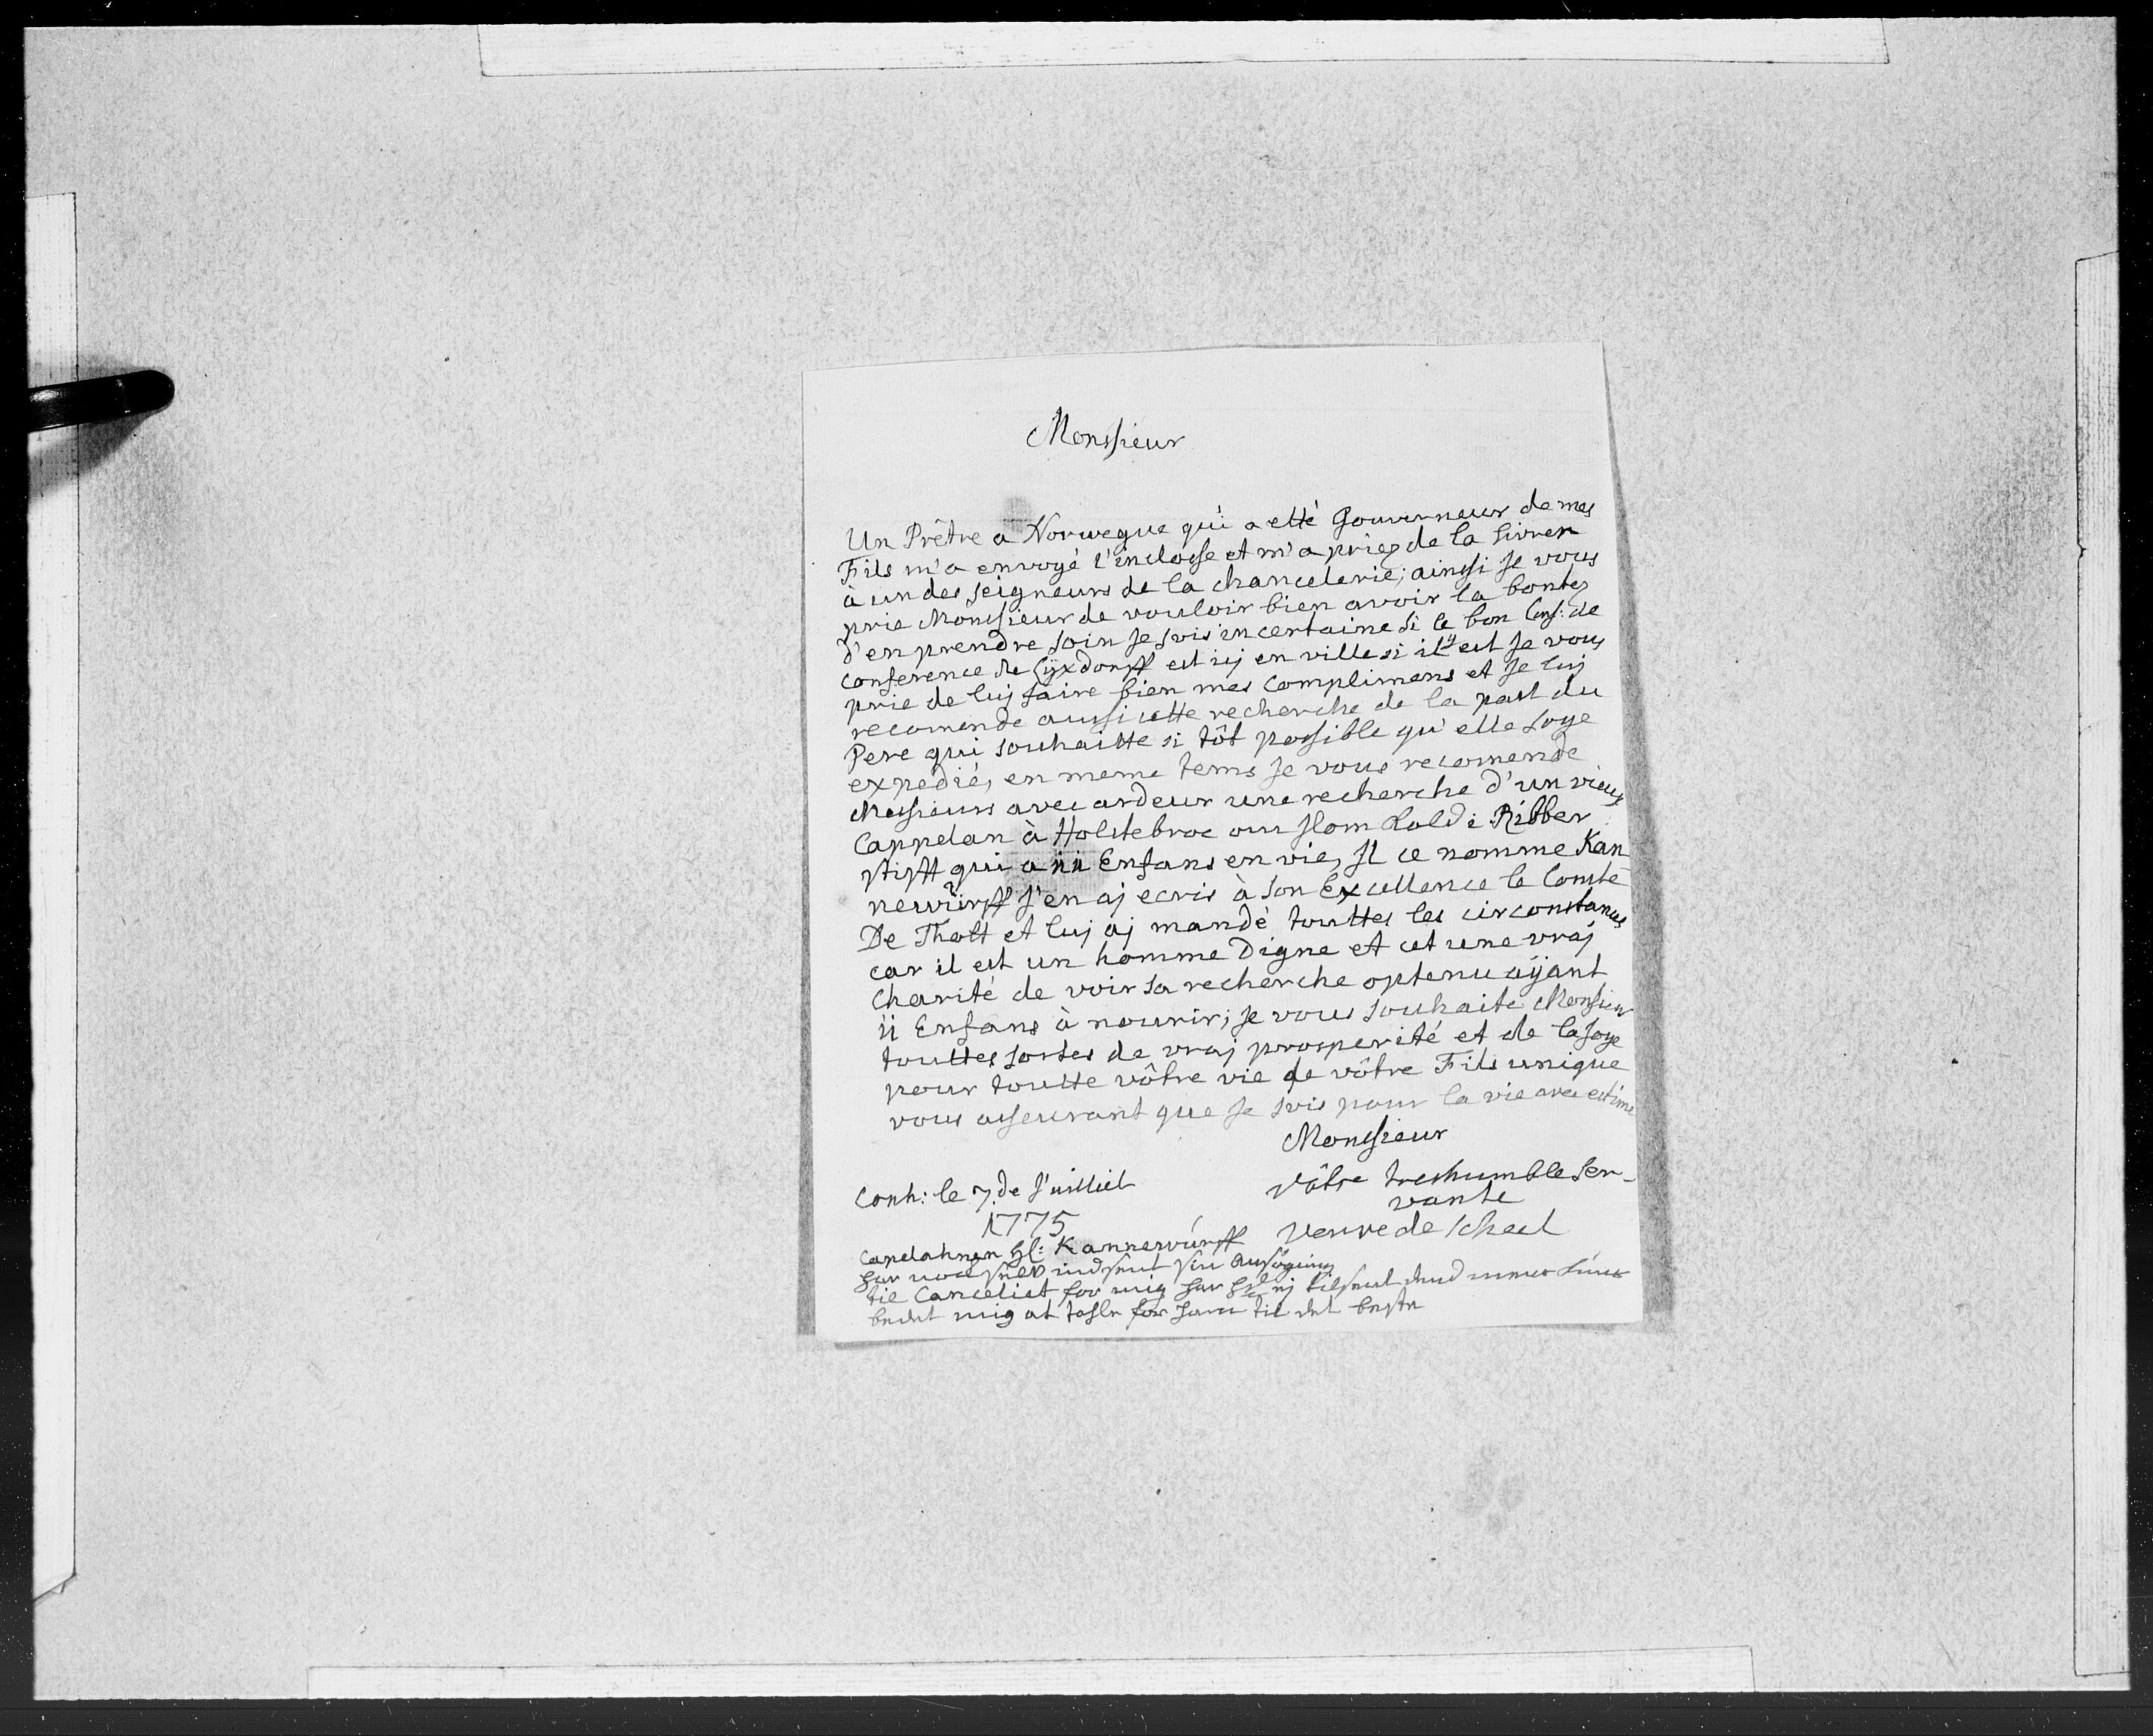 Monsieur
Un Prêtre a Norwegue qui a etté Gouverneur de mes
Fils m'a envoyé l'inclose et m'a priez de la livrer
à un des seigneurs de la chancelerie; ainsi Je vous
prie Monsieur de vouloir bien avoir la bontez
d'en prendre soin Je suis incertaine si le bon Cons: de
conference de Lÿxdorff est icj en ville si il y est Je vous
prie de luj faire bien mes complimens et Je luj
recomende aussi cette recherche de la part du
Pere qui souhaitte si tôt possible qu'elle soye
expedié, en meme tems Je vous recomende
Messieurs avec ardeur une recherche d'un vieux
Cappelan à Holstebroe our Hom Kold i Ribber
stifft qui a 11 Enfans en vie, Il ce nomme Kan
newürff J'en aj ecris à Son Excellence le Comte
De Thott et luj aj mandé touttes les circonstances
car il est un homme Digne et cet une vraj
charité de voir sa recherche optenu aÿant
11 Enfans à nourir; Je vous souhaite Monsieur
touttes sortes de vraj prosperité et de la Joye
pour toutte vôtre vie de vôtre Fils unique
vous asseurant que Je suis pour la vie avec estime
Monsieur
Conh: le 7. de Juilliet
1775
Vôtre treshumble Ser-
vante
Veuve de Scheel
Capelahnen Hl: Kannewürff
har nock selv indsent sin Ansögning
til Canceliet for mig har hand ej tilsent dend men kuns
bedet mig at tahle for ham til det beste